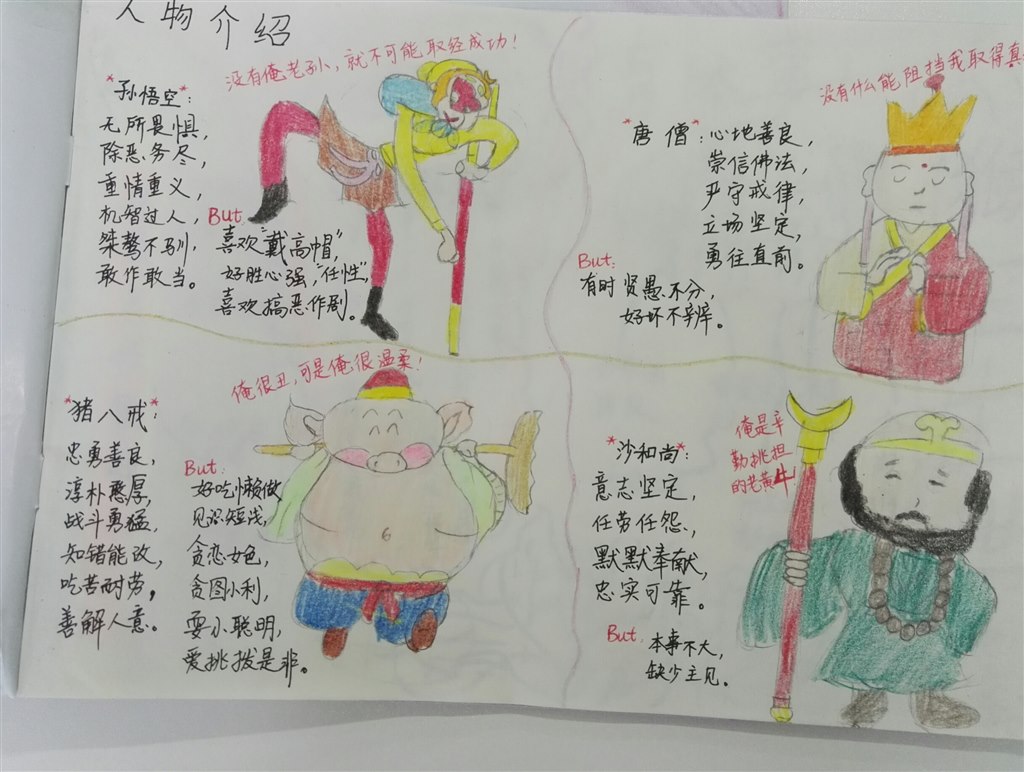 人物介绍
没有俺老孙，就不可能取经成功！
*孙悟空*：
无所畏惧，
除恶务尽，
重情重义，
机智过人，
桀骜不驯，
敢作敢当。
But
喜欢"戴高帽"，
好胜心强，"任性"，
喜欢搞恶作剧。
没有什么能阻挡我取得真
*唐僧*：心地善良，
崇信佛法，
严守戒律，
立场坚定，
勇往直前。
But：
有时贤愚不分，
好坏不辨。
俺很丑，可是俺很温柔！
*猪八戒*：
忠勇善良，
淳朴憨厚，
战斗勇猛，
知错能改，
吃苦耐劳，
善解人意。
But：
好吃懒做
见识短浅，
贪恋女色，
贪图小利，
耍小聪明，
爱挑拨是非。
*沙和尚*：
意志坚定，
任劳任怨，
默默奉献，
忠实可靠。
But：
本事不大，
缺少主见。
俺是辛
勤挑担
的老黄牛